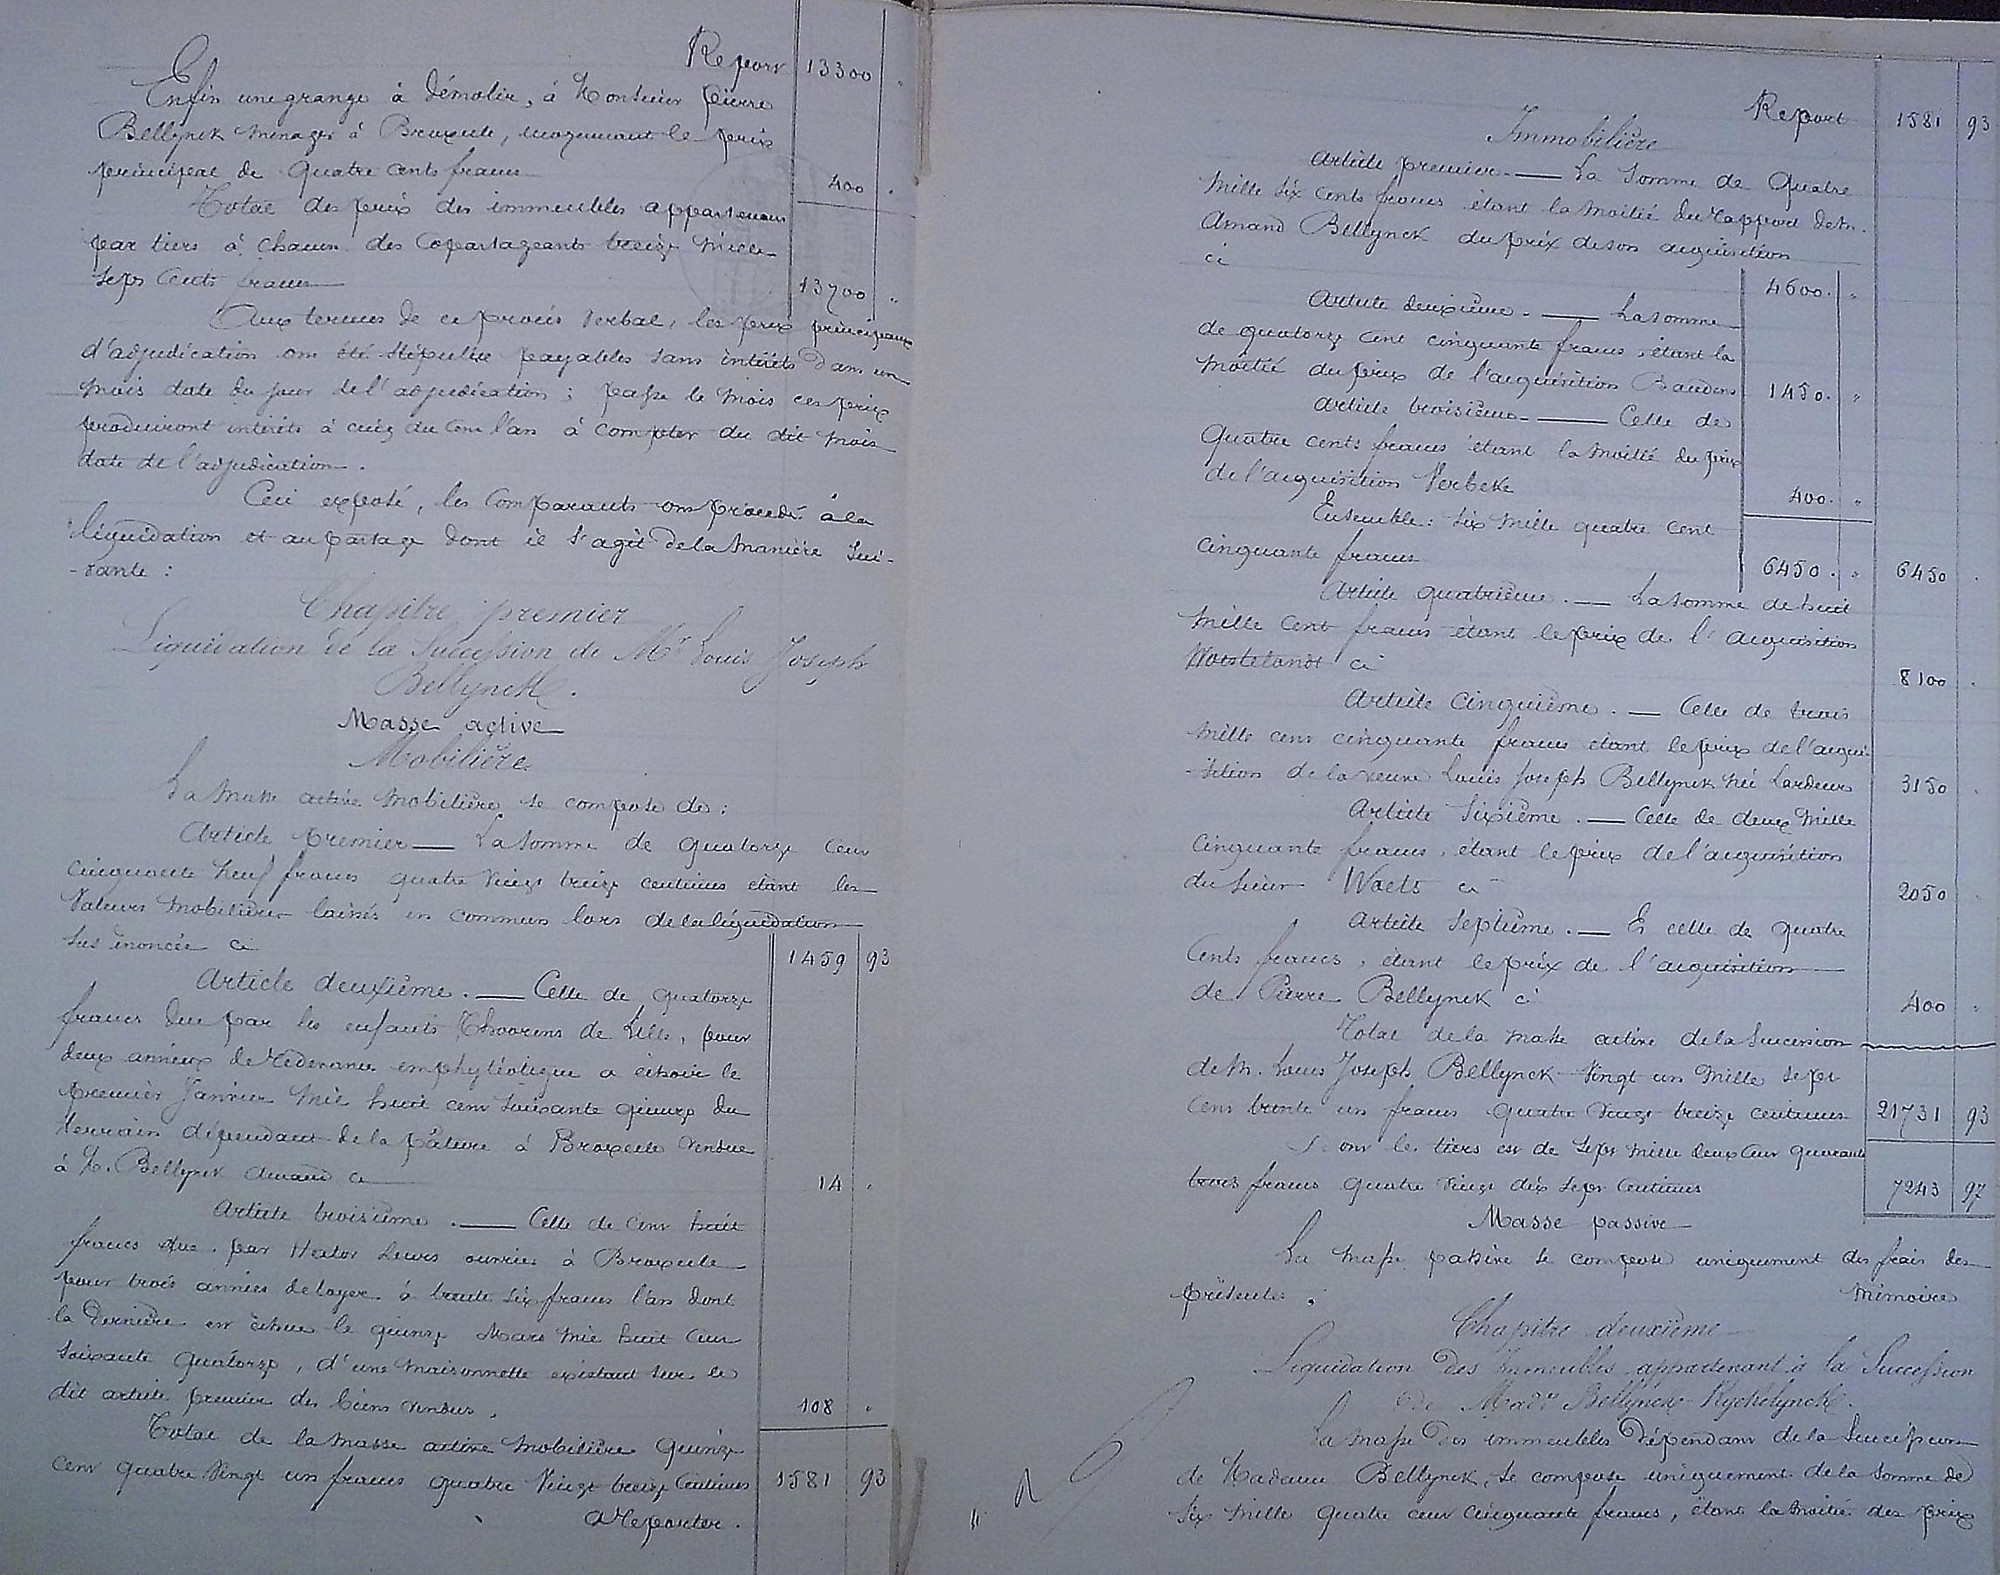 Report 13300 "
Enfin une grange à démolir, à Monsieur Pierre
Bellynck ménager à Broxeele, moyennant le prix
principal de quatre cents francs 400 "
Total des prix des immeubles appartenans
par tiers à chacun des copartageants treize mille
sept cents francs 13700 "
Aux termes de ce procès verbal, les prix principaux
d'adjudication ont été stipulés payables sans intérêts dans un
mois date du jour de l'adjudication ; passé le mois ces prix
produiront intérêts à cinq du cent l'an à compter du dit mois
date de l'adjudication.
Ceci exposé, les comparants ont procédé à la
liquidation et au partage dont il s'agit de la manière sui-
-vante :
Chapitre premier
Liquidation de la Succession de Mr Louis Joseph
Bellynck.
Masse active
Mobilière
La masse active mobilière se compose de :
Article premier — La somme de quatorze cent
cinquante neuf francs quatre vingt treize centimes étant les
valeurs mobilières laissés en commun lors de la liquidation
sus énoncée ci 1459 93
Article deuxième. — Celle de quatorze
francs due par les enfants Thoorens de Lille, pour
deux années de redevance emphytéotique a échoir le
premier Janvier mil huit cent soixante quinze du
terrain dépendant de la pâture à Broxeele vendue
à M. Bellynck Amand ci 14 "
Article troisième. — Celle de cent huit
francs due par Hector Leurs ouvrier à Broxeele
pour trois années de loyer à trente six francs l'an dont
la dernière est échue le quinze Mars mil huit cent
soixante quatorze, d'une maisonnette existant sur le
dit article premier des biens vendus. 108 "
Total de la masse active mobilière quinze
cent quatre vingt un francs quatre vingt treize centimes 1581 93
A Reporter.
Report 1581 93
Immobilière
Article premier. — La somme de quatre
mille six cents francs étant la moitié du rapport de M.
Amand Bellynck du prix de son acquisition
ci 4600. "
Article deuxième. — La somme
de quatorze cent cinquante francs, étant la
moitié du prix de l'acquisition Baudens 1450. "
Article troisième. — Celle de
quatre cents francs étant la moitié du prix
de l'acquisition Verbeke 400. "
Ensemble : six mille quatre cent
cinquante francs 6450. " 6450 .
Article quatrième. — La somme de huit
mille cent francs étant le prix de l'acquisition
ci 8100 .
Article cinquième. — Celle de trois
mille cent cinquante francs étant le prix de l'acqui-
-sition de la veuve Louis Joseph Bellynck née Lardeur 3150 .
Article sixième. — Celle de deux mille
cinquante francs, étant le prix de l'acquisition
du sieur Waels ci 2050 .
Article septième. — Et celle de quatre
cents francs, étant le prix de l'acquisition
de Pierre Bellynck ci 400 "
Total de la masse active de la succession
de M. Louis Joseph Bellynck vingt un mille sept
cent trente un francs quatre vingt treize centimes 21731 93
Dont le tiers est de sept mille deux cent quarante
trois francs quatre vingt dix sept centimes 7243 97
Masse passive
La masse passive se compose uniquement des frais des
présentes. Mémoire
Chapitre deuxième
Liquidation des Immeubles appartenant à la Succession
de Made Bellynck-Ryckelynck.
La masse des immeubles dépendant de la succession
de Madame Bellynck, se compose uniquement de la somme de
six mille quatre cent cinquante francs, étant la moitié des prix